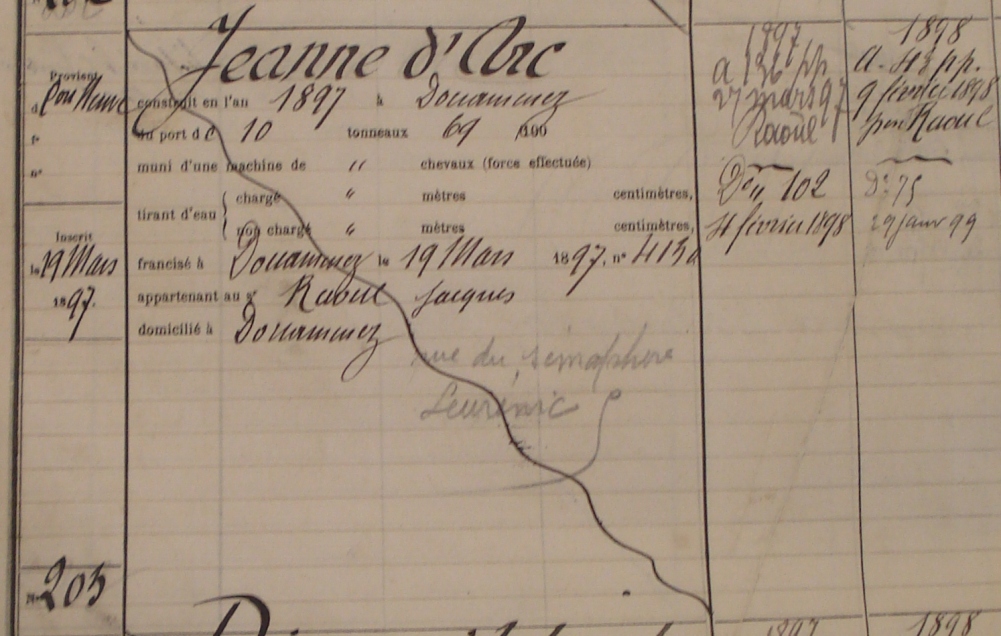 Jeanne d'Arc
Provient
d
construit en l'an 1897 à Douarnenez
f°
du port de 10 tonneaux 69 /100
n°
muni d'une machine de " chevaux (force effectuée)
tirant d'eau
chargé " mètres centimètres,
non chargé " mètres centimètres,
Inscrit
le 19 Mars
1897.
francisé à Douarnenez le 19 Mars 1897. n°
appartenant au sr Raoul Jacques
domicilié à Douarnenez
rue du sémaphore
N° 203
1897
27 mars 97
Raoul
102
4 février 1898
1898
a. 43 pp.
9 février 1898
par Raoul
D° 75
29 janv 99
1897
1898